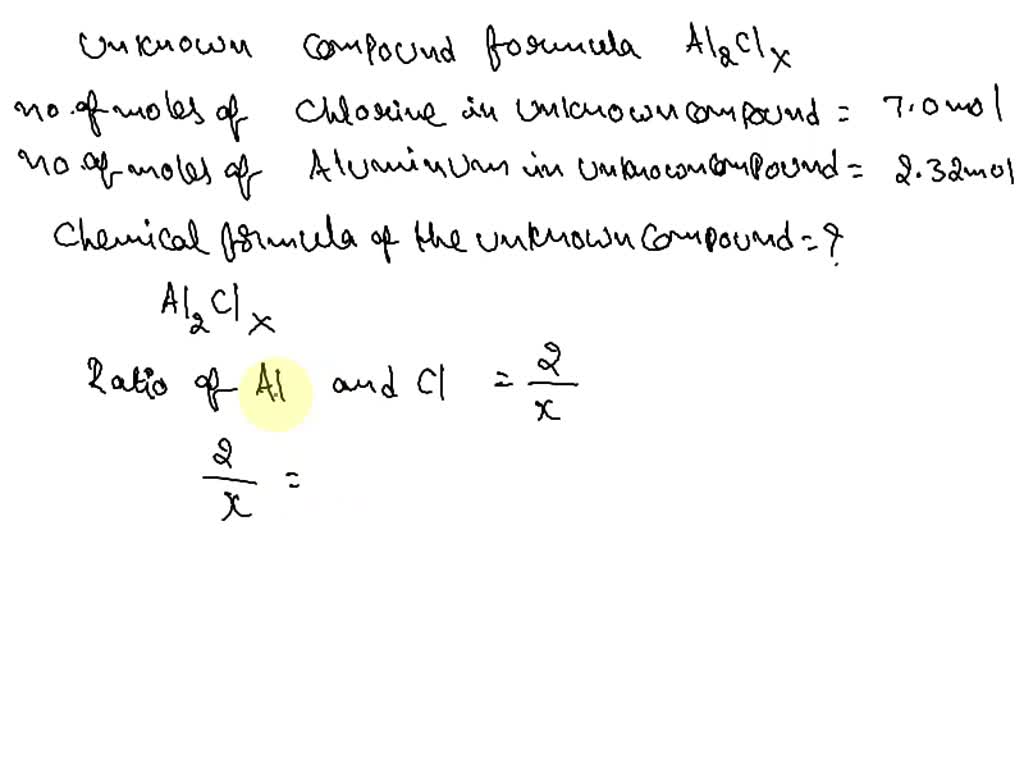 Unknown compound formula Al₂Clₓ
no.of moles of Chlorine in unknown compound = 7.0 mol
no.of moles of Aluminum in unknown compound = 2.32 mol
Chemical formula of the unknown compound = ?
Al₂Clₓ
Ratio of Al and Cl = 2/x
2/x =